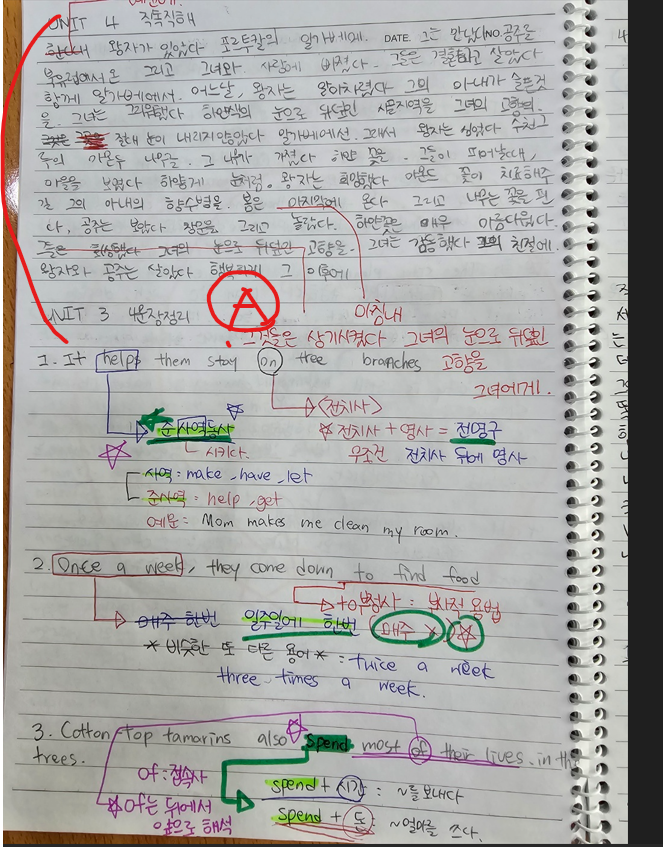 UNIT 4 직독직해
왕자가 있었다 포르투칼의 알가베에. DATE. 그는 만났다 NO. 공주를
북유럽에서 온 그리고 그녀와 사랑에 빠졌다. 그들은 결혼하고 살았다
함께 알가베에서. 어느날, 왕자는 알아차렸다 그의 아내가 슬픈것
을. 그녀는 그리워했다 하얀색의 눈으로 뒤덮인 시골지역을 그녀의 고향의.
절대 눈이 내리지않았다 알가베에선. 그래서 왕자는 심었다 수천 그
루의 아몬드 나무를. 그 나무가 가졌다 하얀 꽃을. 그들이 피어날때,
마을을 보였다 하얗게 눈처럼. 왕자는 희망했다 아몬드 꽃이 치료해주
길 그의 아내의 향수병을. 봄은 마지막에 온다 그리고 나무는 꽃을 핀
다, 공주는 보았다 창문을 그리고 놀랐다. 하얀꽃은 매우 아름다웠다.
그들은 회상했다 그녀의 눈으로 뒤덮인 고향을. 그녀는 감동했다 그의 친절에.
왕자와 공주는 살았다 행복하게 그 이후에
A
마침내
UNIT 3 4문장정리
그것들은 상기시켰다 그녀의 눈으로 뒤덮인
고향을
그녀에게!
1. It helps them stay on tree branches
<전치사>
준사역동사
전치사 + 명사 = 전명구
시키다.
무조건 전치사 뒤에 명사
사역 : make, have, let
준사역 : help, get
예문 : Mom makes me clean my room.
2. Once a week, they come down to find food
to부정사 : 부사적 용법
매주 한번 일주일에 한번 (매주 X)
* 비슷한 또 다른 용어 * : twice a week
three times a week.
3. Cotton top tamarins also spend most of their lives in th
trees.
of : 접속사
spend + 시간 : ~를 보내다
of는 뒤에서
앞으로 해석
spend + 돈 : ~얼마를 쓰다.